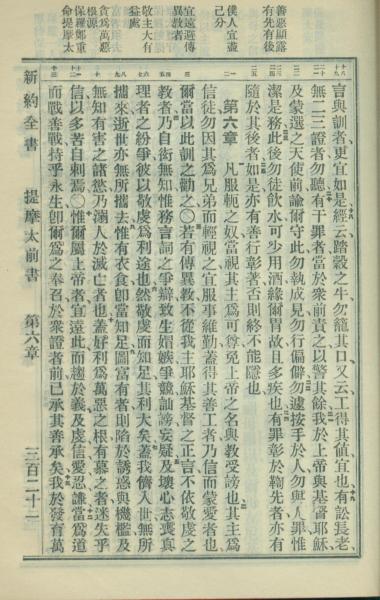 善惡顯露
有先有後
僕人宜盡
己分
宜遠避傳
異教者
敬主大有
益處
貪爲萬惡
根源
保羅鄭重
命提摩太
言與訓者更宜如是經云踏穀之牛勿籠其口又云工得其値宜也有訟長老
無二三證者勿聽有干罪者當於衆前責之以警其餘我於上帝與基督耶穌
及蒙選之天使前諭爾守此勿執成見勿行偏僻勿遽按手於人勿與人罪惟
潔是務此後勿徒飲水可少用酒緣爾胃故且多疾也有罪彰於鞫先者亦有
隨於其後者如是亦有善行彰著否則終不能隱也
第六章 凡服軛之奴當視其主爲可尊免上帝之名與教受謗也其主爲
信徒勿因其爲兄弟而輕視之宜服事維勤蓋得其善工者乃信而蒙愛者也
爾當以此訓之勸之○若有傳異教不從我主耶穌基督之正言不依敬虔之
教者乃自衒無知惟務言詞之爭辯致生媢嫉爭競訕謗妄疑及壞心志喪眞
理者之紛爭彼以敬虔爲利途也然敬虔而知足其利大矣蓋我儕入世無所
攜來逝世亦無所攜去惟有衣食卽當知足圖富有者則陷於誘惑與機檻及
無知有害之諸慾乃溺人於滅亡者也蓋好利爲萬惡之根有慕之者迷失乎
信以多苦自刺焉○惟爾屬上帝者宜遠此而趨於義及虔信愛忍謙當爲道
而戰善戰持乎永生卽爾爲之奉召於衆證者前已承其善承矣我於發育萬
新約全書 提摩太前書 第六章 三百二十一